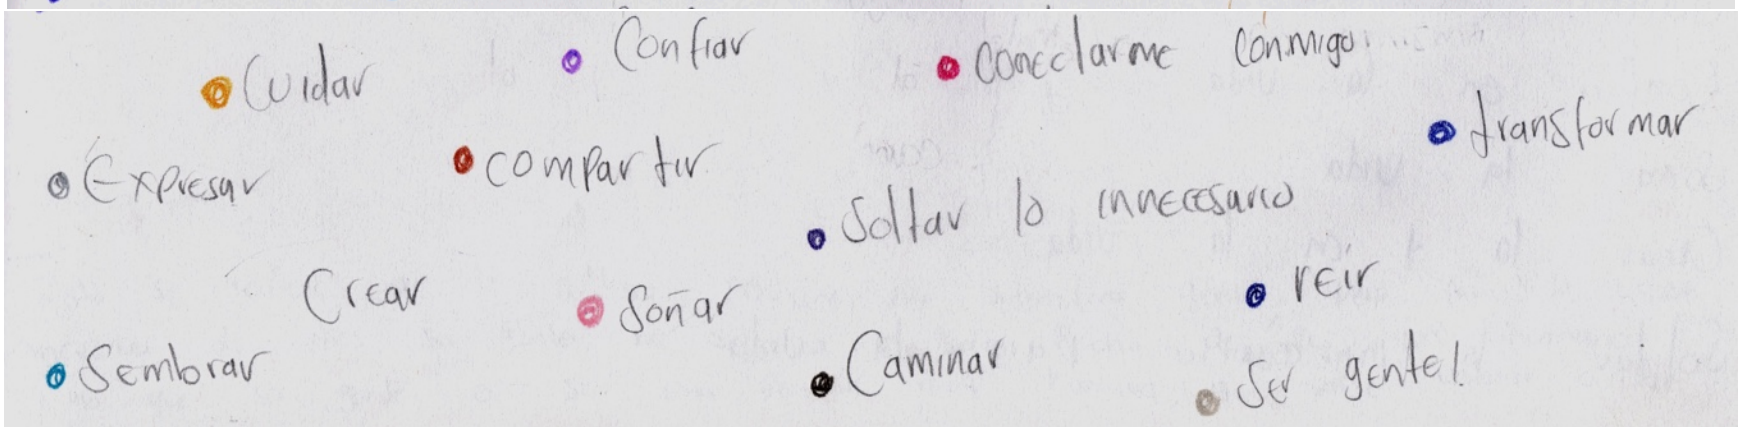 Confiar
Conectarme conmigo
Cuidar
transformar
Expresar
compartir
Soltar lo innecesario
Crear
Soñar
reir
Sembrar
Caminar
Ser gente!